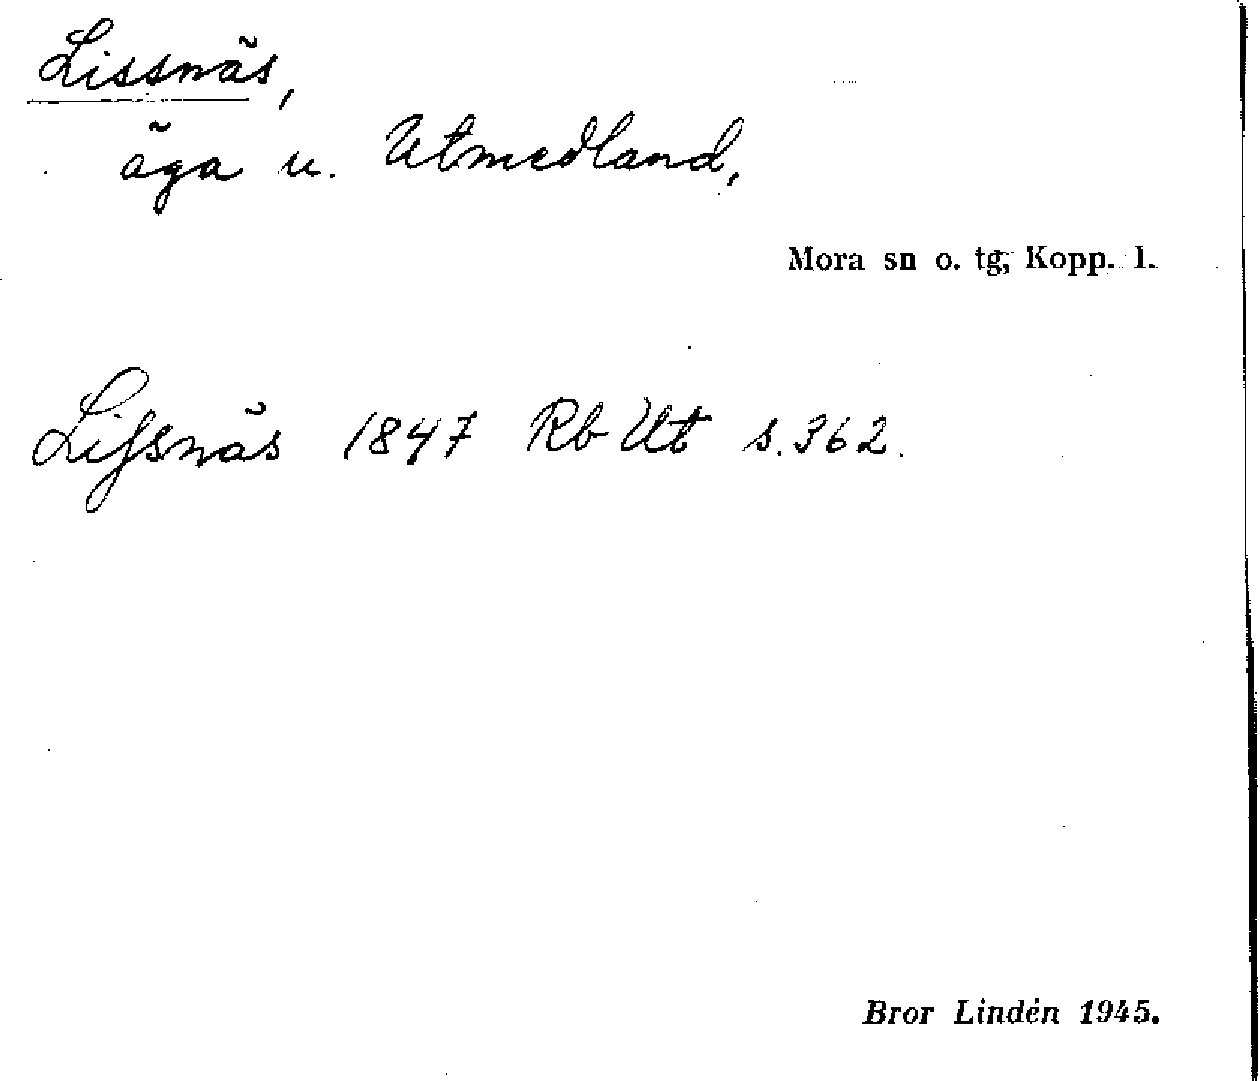 Lissnäs,
äga u. Utmedland,
Mora sn o. tg, Kopp. l.
Lifsnäs 1847 Rb Ut s. 362.
Bror Lindén 1945.